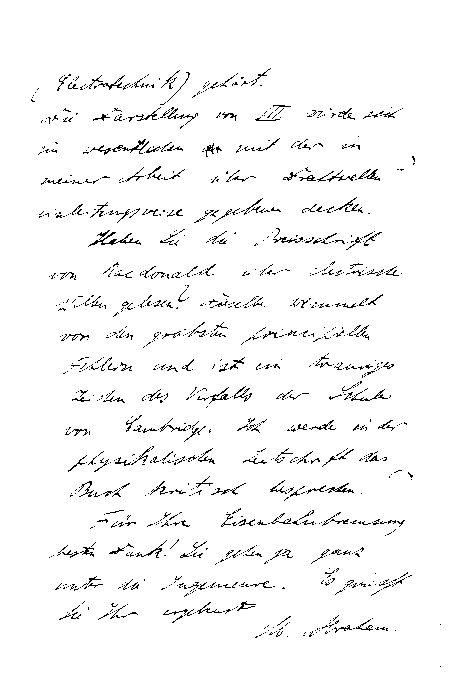 (Electrotechnik) gehört.
Die Darstellung von III würde sich
im wesentlichen mit der in
meiner Arbeit über Drahtwellen
gegebenen decken.
Haben Sie die Preisschrift
von Macdonald über electrische
Wellen gelesen? Dieselbe wimmelt
von den gröbsten principiellen
Fehlern und ist ein trauriges
Zeichen des Verfalls der Schule
von Cambridge. Ich werde in der
physikalischen Zeitschrift das
Buch kritisch besprechen.
Für Ihre Eisenbahnbremsung
besten Dank! Sie gehen ja ganz
unter die Ingenieure. Es grüsst
Sie Ihr ergebenst
M. Abraham.